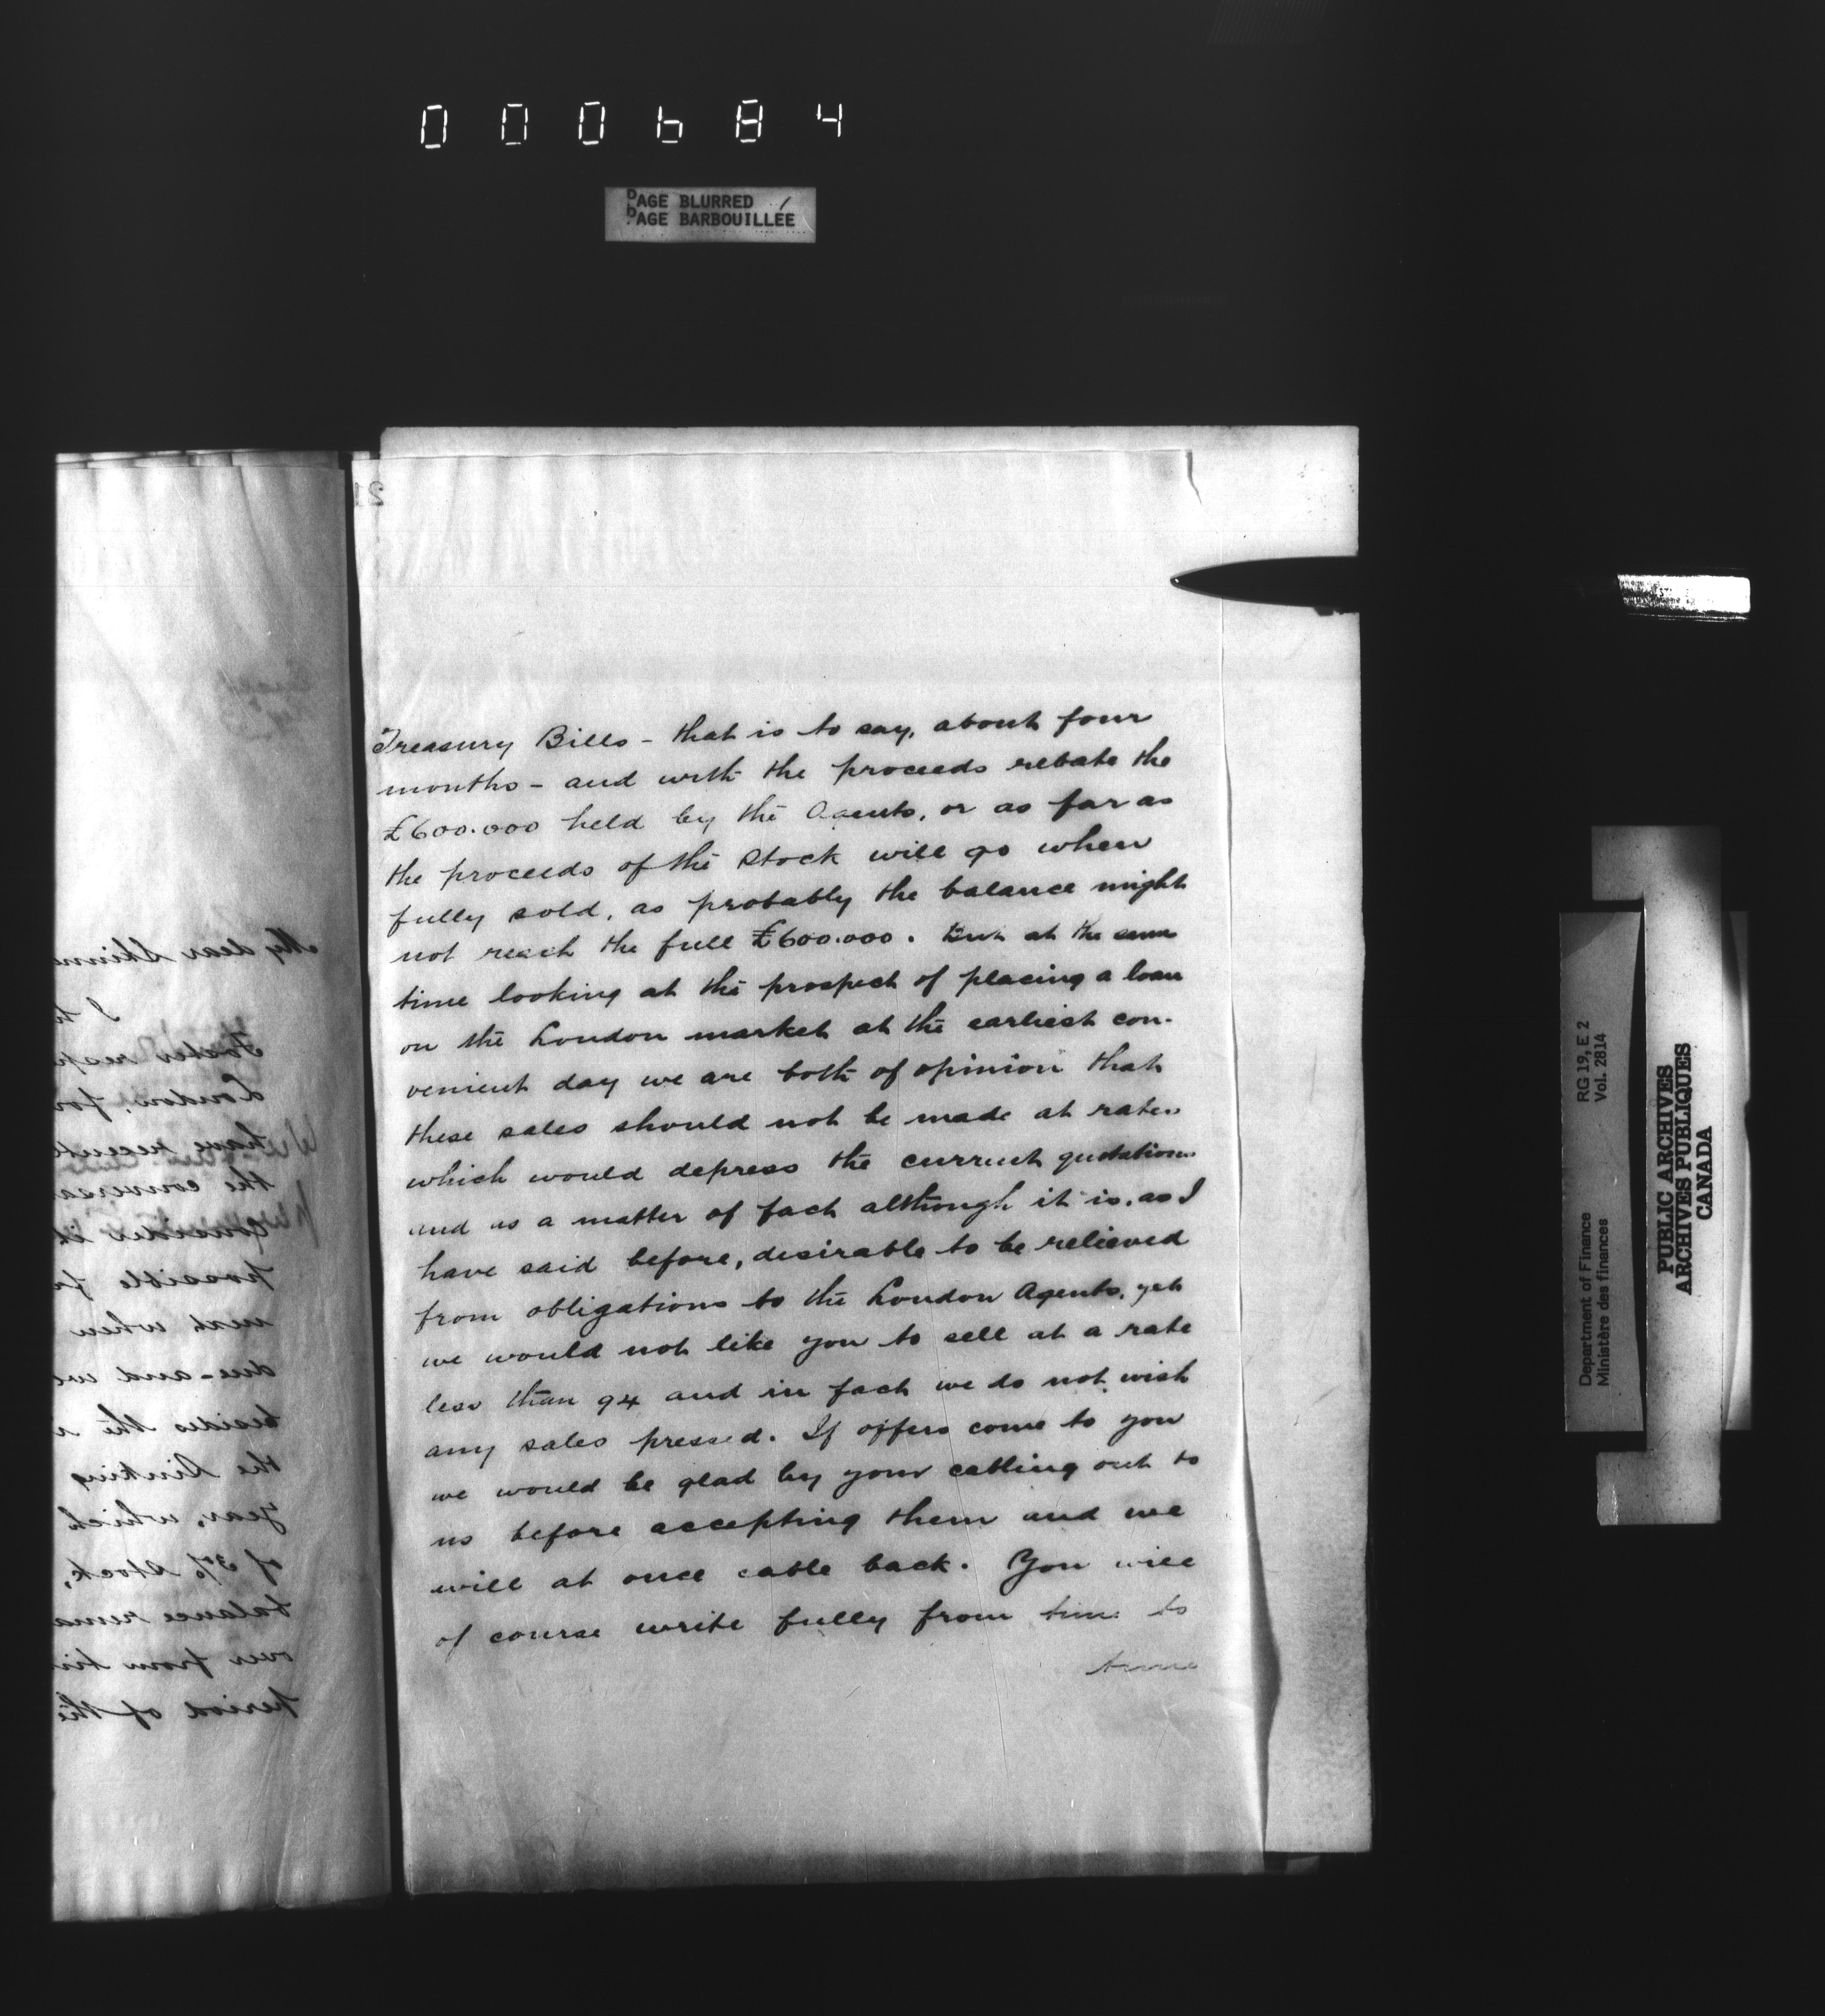 000684
PAGE BLURRED
PAGE BARBOUILLÉE
Treasury Bills - that is to say, about four
months - and with the proceeds rebate the
£600.000 held by the Agents, or as far as
the proceeds of the Stock will go when
fully sold, as probably the balance might
not reach the full £600.000. But at the same
time looking at the prospect of placing a loan
on the London market at the earliest con-
venient day we are both of opinion that
these sales should not be made at rates
which would depress the current quotations
and as a matter of fact although it is, as I
have said before, desirable to be relieved
from obligations to the London Agents, yet
we would not like you to sell at a rate
less than 94 and in fact we do not wish
any sales pressed. If offers come to you
we would be glad by your cabling out to
us before accepting them and we
will at once cable back. You will
of course write fully from time to
time
My dear Skinne
I
London, for
have recent
the conversa
Consider it
possible
next when
due - and we
besides the
the Sinking
year, which
of 3% Stock,
balance rema
over from ti
period of the
RG 19, E 2
Vol. 2814
Department of Finance
Ministère des finances
PUBLIC ARCHIVES
ARCHIVES PUBLIQUES
CANADA